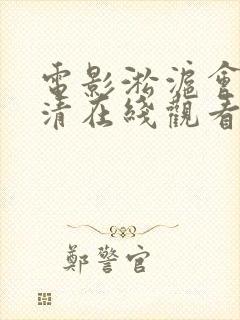 電影淞滬會
清在綫觀看
鄭警官